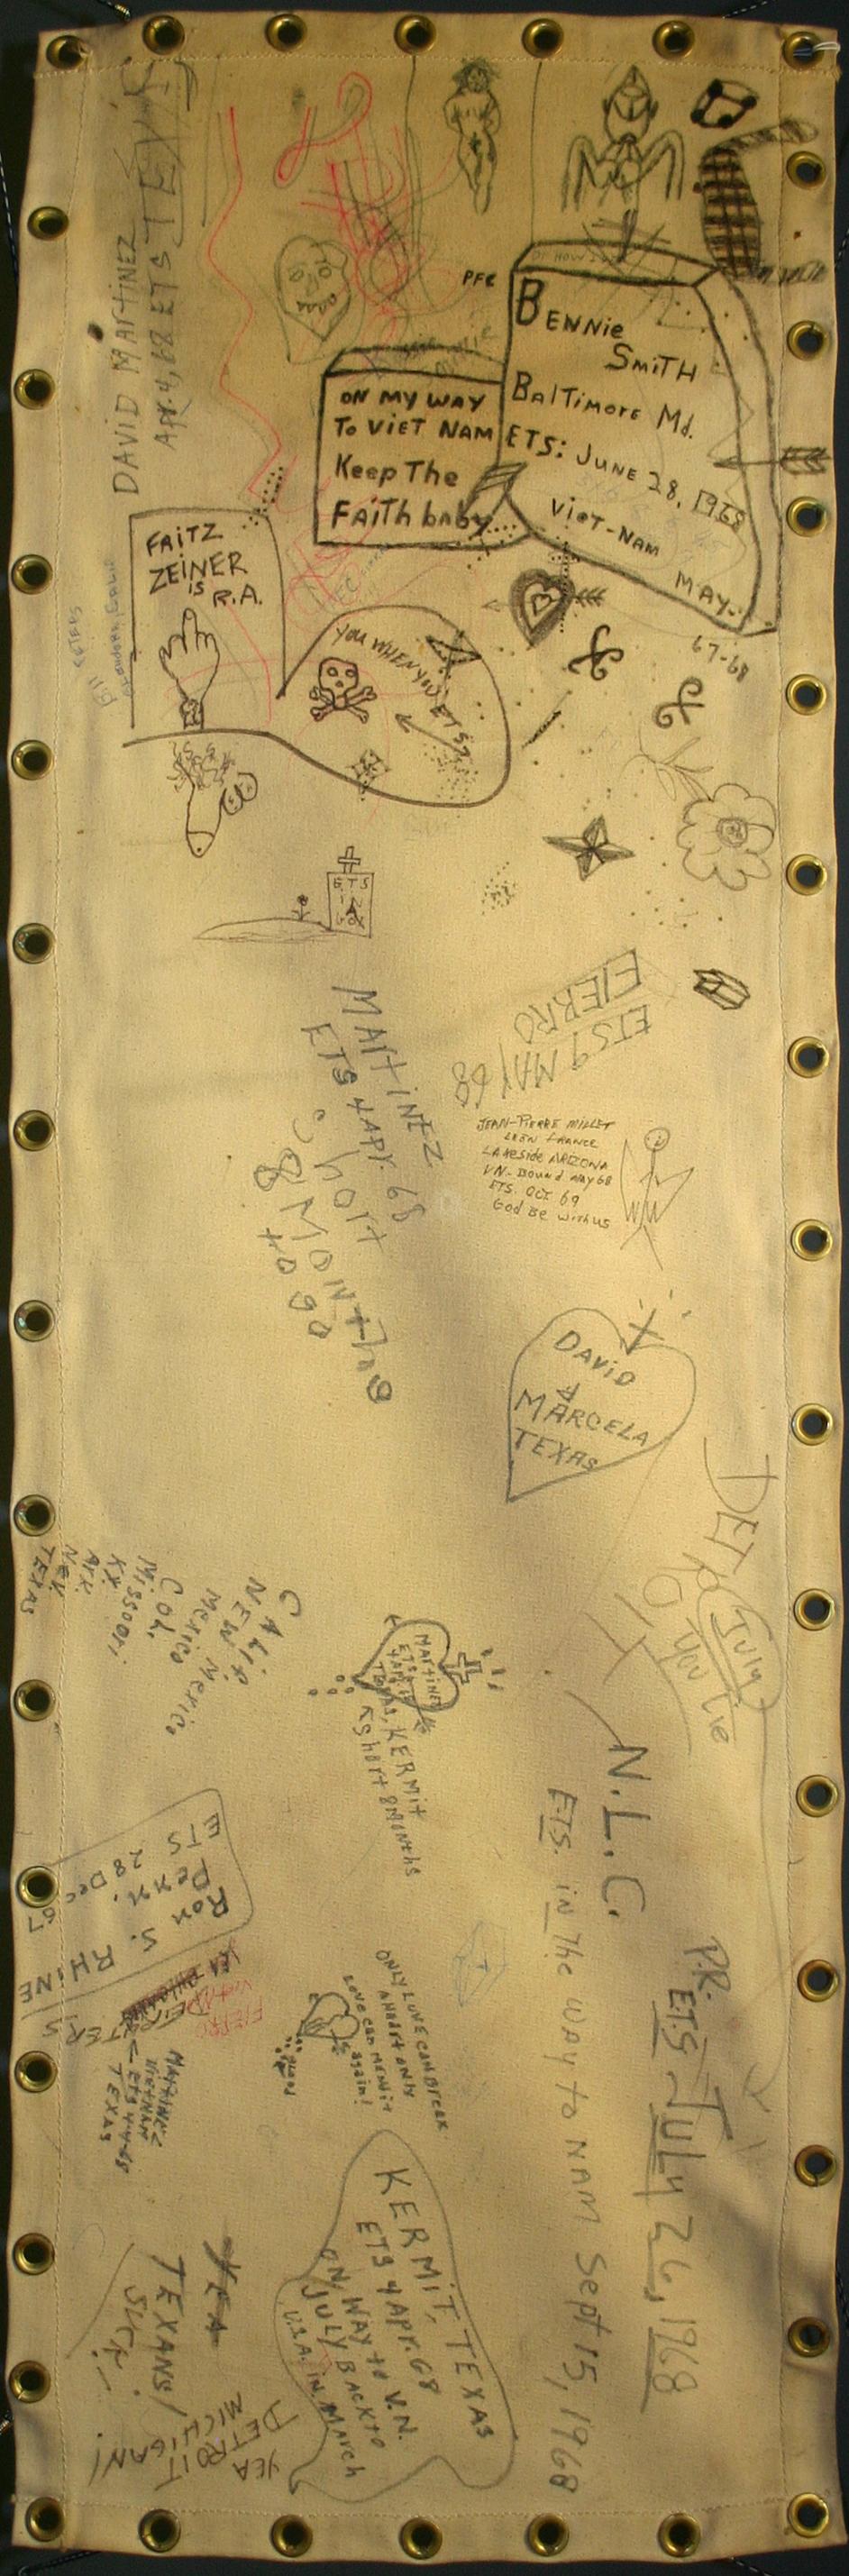 DAVID MARTINEZ
APR. 4, 68 ETS
PFC
BENNIE
SMITH
BALTIMORE Md.
ETS: JUNE 28, 1968
VIET-NAM
MAY-
67-68
ON MY WAY
TO VIET NAM
Keep The
FAITH baby
FRITZ
ZEINER
IS R.A.
YOU WHEN YOU ETS?
ETS
IN
A
BOX
FIERRO
ETS 9 MAY 68
MARTINEZ
ETS 4 APR. 68
Short
8 MONTHS
to go
JEAN-PIERRE MILLET
LYON FRANCE
LAKESIDE ARIZONA
VN. Bound MAY 68
ETS. OCT 69
God Be with us
DAVID
&
MARCELA
TEXAS
DETROIT
July
YOU Lie
CALIF
NEW Mexico
Mexico
COL.
Missoori
KY
ARK
TEXAS
MARTINEZ
ETS
4 APR 68
TEXAS, KERMIT
Short 8 MONTHS
N.L.C.
ETS. in The way to NAM Sept 15, 1968
P.R.
ETS JULY 26, 1968
ETS 28 Dec 67
Penn.
RON S. RHINE
FIERRO
ONLY LOVE CAN BREAK
A HEART ONLY
LOVE CAN MEND IT
again!
MARTINEZ
VIETNAM
ETS 4-4-68
TEXAS
KERMIT, TEXAS
ETS 4 APR. 68
ON WAY to V.N.
JULY BACK to
U.S.A. IN MARCH
YEA
TEXANS
SUCK!
YEA
DETROIT
MICHIGAN!